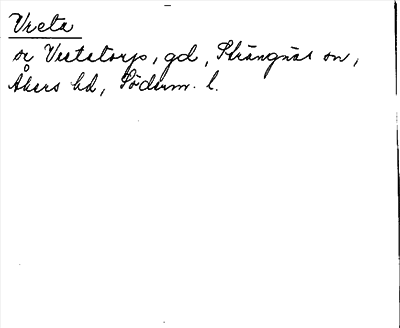 Vreta
se Vretatorp, gd, Strängnäs sn,
Åkers hd, Söderm. l.